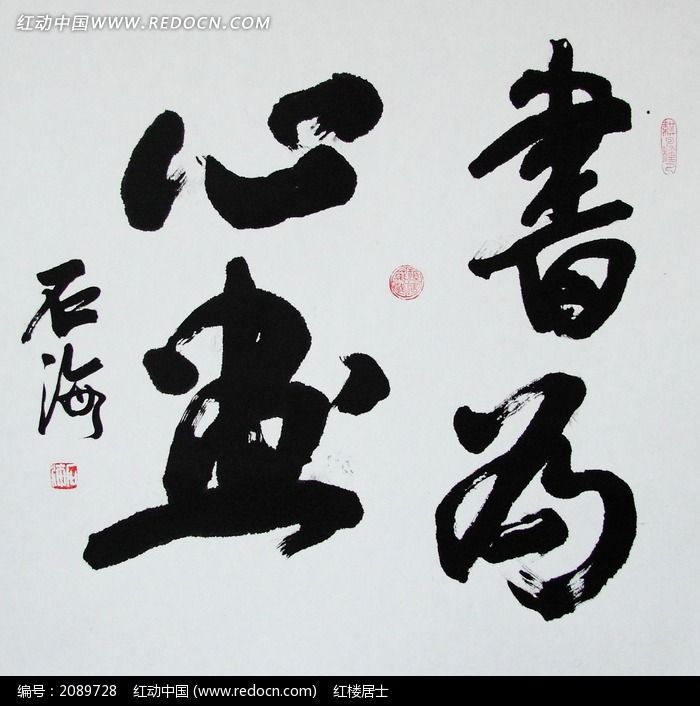 红动中国WWW.REDOCN.COM
書為
心畫
石海
编号：2089728 红动中国 (www.redocn.com) 红楼居士